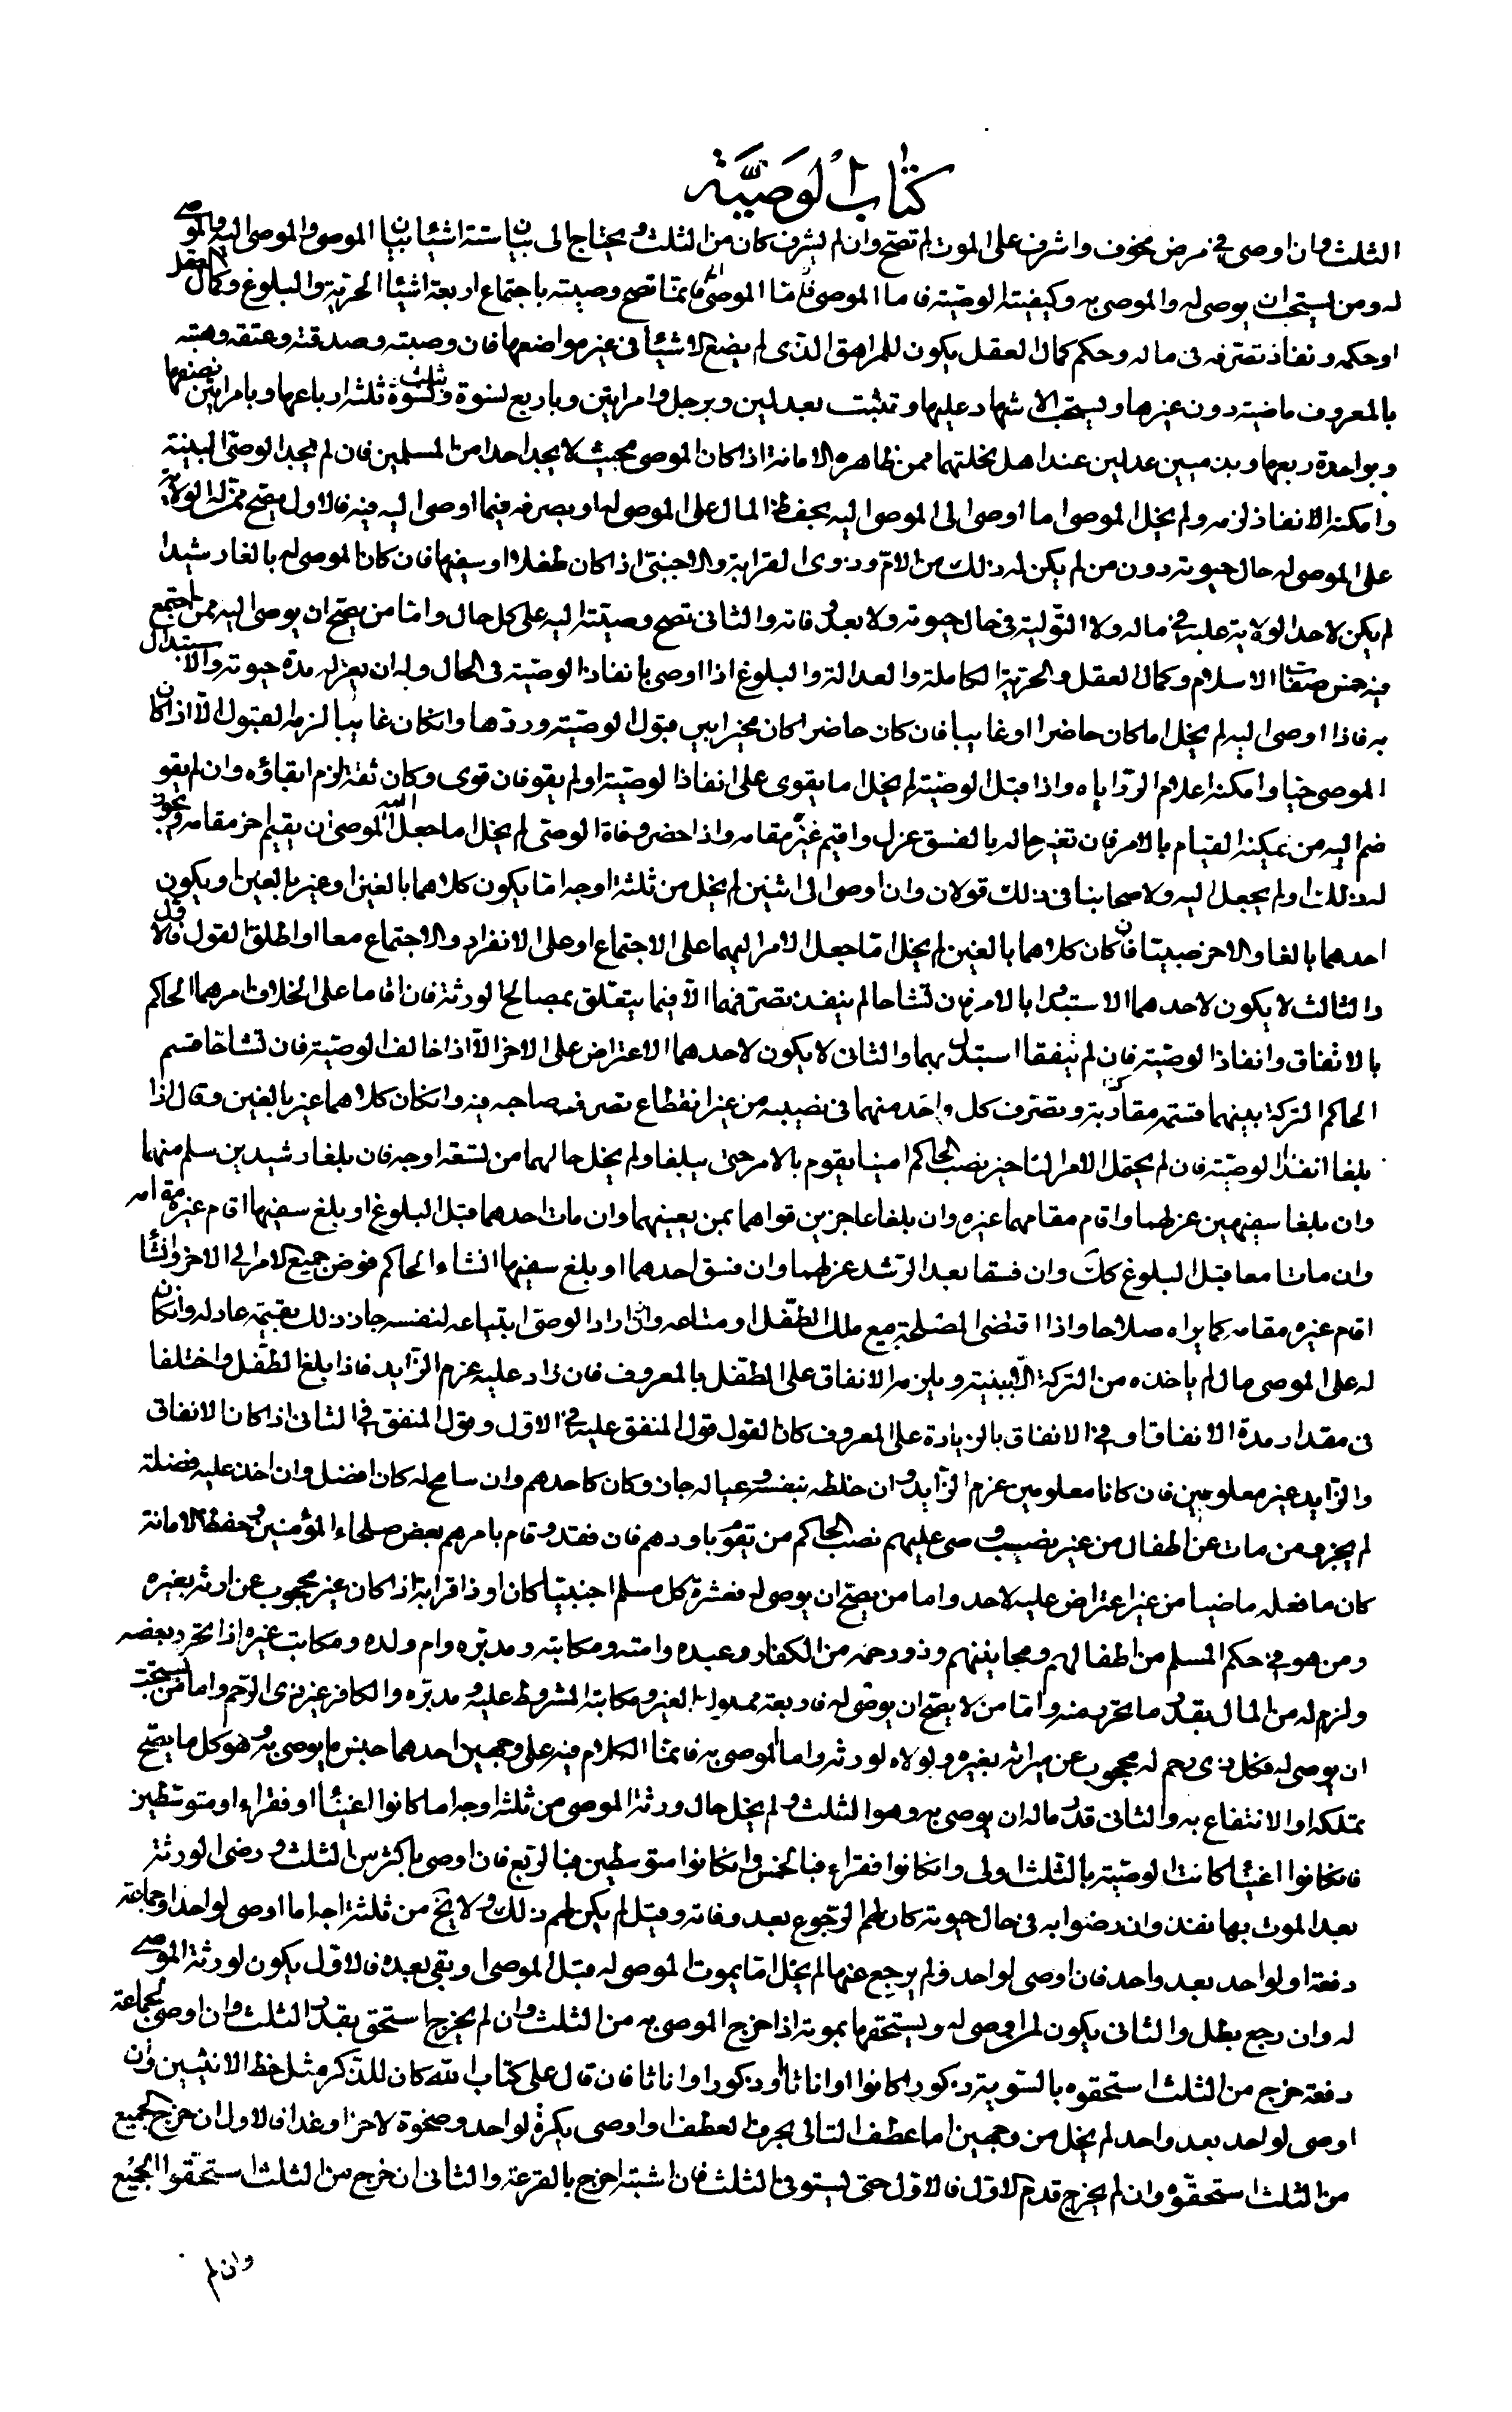 كتاب الوصية
الثلث وان اوصى فى مرض مخوف واشرف على الموت لم تصح وان لم يشرف كان من الثلث ويحتاج الى بيان ستة اشياء بيان الموصى والموصى اليه والموصى
له ومن يستحب ان يوصى له والموصى به وكيفية الوصية فاما الموصى فانما تصح وصيته باجتماع اربعة اشياء الحرية والبلوغ وكمال العقل
او حكمه ونفاذ تصرفه فى ماله وحكم كمال العقل يكون للمراهق الذى لم يضع الاشياء فى غير مواضعها فان وصيته وصدقته وعتقه وهبته
بالمعروف ماضية دون غيرها ويستحب الاشهاد عليها وتثبت بعدلين وبرجل وامراتين وباربع نسوة وبثلث نسوة ثلثة ارباعها وبامراتين نصفها
وبواحدة ربعها وبذميين عدلين عند اهل نحلتهما ممن ظاهره الامانة اذا كان الموصى بحيث لا يجد احدا من المسلمين فان لم يجد الوصى البينة
وامكنه الانفاذ لزمه ولم يخل الموصى اما اوصى الى الموصى اليه بحفظ المال على الموصى له او بصرفه فيما اوصى اليه فيه فالاول يصح ممن له الولاية
على الموصى له حال حيوته دون من لم يكن له ذلك من الام وذوى القرابة والاجنبى اذا كان طفلا او سفيها فان كان الموصى له بالغا رشيدا
لم يكن لاحد الولاية عليه فى ماله ولا التولية فى حال حيوته ولا بعد وفاته والثانى تصح وصيته اليه على كل حال واما من يصح ان يوصى اليه ممن اجتمع
فيه خمس صفات الاسلام وكمال العقل والحرية الكاملة والعدالة والبلوغ اذا اوصى بانفاذ الوصية فى الحال وله ان يعزله مدة حيوته والاستبدال
به فاذا اوصى اليه لم يخل اما كان حاضرا او غايبا فان كان حاضرا كان مخيرا بين قبول الوصية وردها وان كان غايبا لزمه القبول الا اذا كان
الموصى حيا وامكنه اعلام الرد اياه واذا قبل الوصية لم يخل اما يقوى على انفاذ الوصية او لم يقو فان قوى وكان ثقة لزم ابقاؤه وان لم يقو
ضم اليه من يمكنه القيام بالامر فان تغير حاله بالفسق عزل واقيم غيره مقامه واذا حضر وفاة الوصى لم يخل اما جعل اليه الموصى ان يقيم اخر مقامه ويجوز
له ذلك او لم يجعل اليه ولاصحابنا فى ذلك قولان وان اوصى الى اثنين لم يخل من ثلثة اوجه اما يكون كلاهما بالغين او غير بالغين او يكون
احدهما بالغا والاخر صبيا فان كان كلاهما بالغين لم يخل اما جعل الامر اليهما على الاجتماع او على الانفراد والاجتماع معا او اطلق القول فالاول
والثالث لا يكون لاحدهما الاستبداد بالامر فان تشاحا لم ينفذ تصرفهما الا فيما يتعلق بمصالح الورثة فان اقاما على الخلاف امرهما الحاكم
بالاتفاق وانفاذ الوصية فان لم يتفقا استبدل بهما والثانى لا يكون لاحدهما الاعتراض على الاخر الا اذا خالف الوصية فان تشاحا قسم
الحاكم التركة بينهما قسمة مقاربة وتصرف كل واحد منهما فى نصيبه من غير انقطاع تصرف صاحبه فيه وان كان كلاهما غير بالغين وقال اذا
بلغا انفذا الوصية فان لم يحتمل الامر التاخير نصب الحاكم امينا يقوم بالامر حتى يبلغا ولم يخل حالهما من تسعة اوجه فان بلغا رشيدين سلم منهما
وان بلغا سفيهين عزلهما واقام مقامهما غيره وان بلغا عاجزين قواهما بمن يعينهما وان مات احدهما قبل البلوغ او بلغ سفيها اقام غيره مقامه
وان ماتا معا قبل البلوغ كان وان فسقا بعد الرشد عزلهما وان فسق احدهما او بلغ سفيها ان شاء الحاكم فوض جميع الامر الى الاخر وان شاء
اقام غيره مقامه كما يراه صلاحا واذا اقتضى المصلحة بيع ملك الطفل او متاعه وان اراد الوصى ابتياعه لنفسه جاز ذلك بقيمة عادلة وان كان
له على الموصى مال لم ياخذه من التركة الا ببينة ويلزمه الانفاق على الطفل بالمعروف فان زاد عليه غرم الزايد فاذا بلغ الطفل واختلفا
فى مقدار مدة الانفاق او فى الانفاق بالزيادة على المعروف كان القول قول المنفق عليه فى الاول وقول المنفق فى الثانى اذا كان الانفاق
والزايد غير معلومين فان كانا معلومين غرم الزايد وان خلطه بنفسه وعياله جاز وكان كاحدهم وان سامح له كان افضل وان اخذ عليه فضلة
لم يجز ومن مات عن اطفال من غير نصيب وصى عليهم نصب الحاكم من يقوم باودهم فان فقد وقام بامرهم بعض صلحاء المؤمنين وحفظ الامانة
كان ما فعله ماضيا من غير اعتراض عليه لاحد واما من يصح ان يوصى له فعشرة كل مسلم اجنبيا كان او ذا قرابة اذا كان غير محجوب عن ارثه بغيره
ومن هو فى حكم المسلم من اطفالهم ومجانينهم وذو رحمه من الكفار وعبده وامته ومكاتبه ومدبره وام ولده ومكاتب غيره اذا تحرر بعضه
ولزم له من المال بقدر ما تحرر منه واما من لا يصح ان يوصى له فاربعة مملوك الغير ومكاتبه المشروط عليه ومدبره والكافر غير ذى الرحم واما من يستحب
ان يوصى له فكل ذى رحم له محجوب عن ميراثه بغيره ولولاه لورثه واما الموصى به فانما الكلام فيه على وجهين احدهما جنس ما يوصى به وهو كل ما يصح
تملكه او الانتفاع به والثانى قدر ماله ان يوصى به وهو الثلث ولم يخل حال ورثة الموصى من ثلثة اوجه اما كانوا اغنياء او فقراء او متوسطين
فان كانوا اغنياء كانت الوصية بالثلث اولى وان كانوا فقراء فبالخمس وان كانوا متوسطين فبالربع فان اوصى باكثر من الثلث ورضى الورثة
بعد الموت بها نفذ وان رضوا به فى حال حيوته كان لهم الرجوع بعد وفاته وقيل لم يكن لهم ذلك ولا يخ من ثلثة اوجه اما اوصى لواحد او جماعة
دفعة او لواحد بعد واحد فان اوصى لواحد ولم يرجع عنها لم يخل اما يموت الموصى له قبل الموصى او بقى بعده فالاول يكون لورثة الموصى
له وان رجع بطل والثانى يكون لمن اوصى له ويستحقها بموته اذا خرج الموصى به من الثلث وان لم يخرج استحق بقدر الثلث وان اوصى لجماعة
دفعة خرج من الثلث استحقوه بالسوية ذكورا كانوا او اناثا او ذكورا واناثا فان قال على كتاب الله كان للذكر مثل حظ الانثيين وان
اوصى لواحد بعد واحد لم يخل من وجهين اما عطف التالى بحرف العطف او اوصى بكرة لواحد وضحوة لاخر او غدا فالاول ان خرج الجميع
من الثلث استحقوه وان لم يخرج قدم الاول فالاول حتى يستوفى الثلث فان اشتبه اخرج بالقرعة والثانى ان خرج من الثلث استحقوا الجميع
وان لم